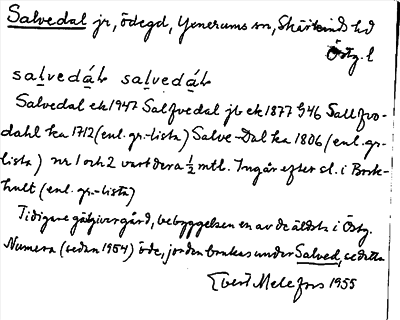 Salvedal jr, ödegd, Yxnerums sn, Skärkinds hd
Östg. l
salvedál salvedál
Salvedal ek 1947 Salfvedal jb ek 1877 G46 Sallfvo-
dahl ka 1712 (enl. gr.-lista) Salve-Dal ka 1806 (enl. gr.-
lista) nr 1 och 2 vardera ½ mtl. Ingår efter sl. i Bork-
hult (enl. gr.-lista)
Tidigare gästgivargård, bebyggelsen en av de äldsta i Östg.
Numera (sedan 1954) öde, jorden brukas under Salved, se detta
Evert Melefors 1955